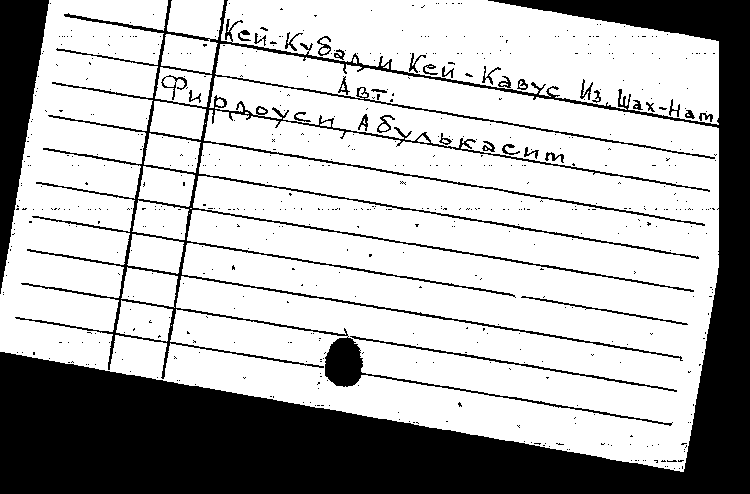 Кей-Кубад и Кей-Кавус Из Шах-Нам.
Авт:
Фирдоуси, Абулькасим.